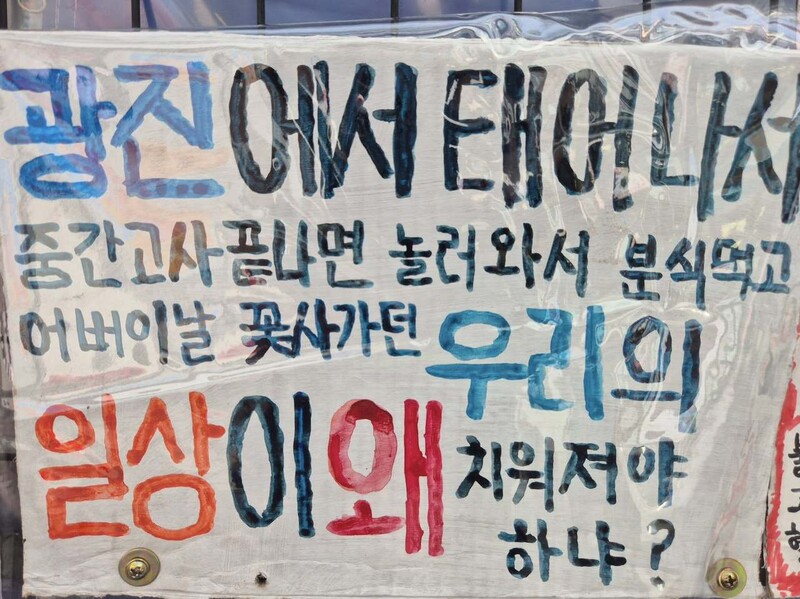 광진에서 태어나서
중간고사 끝나면 놀러와서 분식먹고
어버이날 꽃사가던 우리의
일상이 왜 치워져야
하냐?